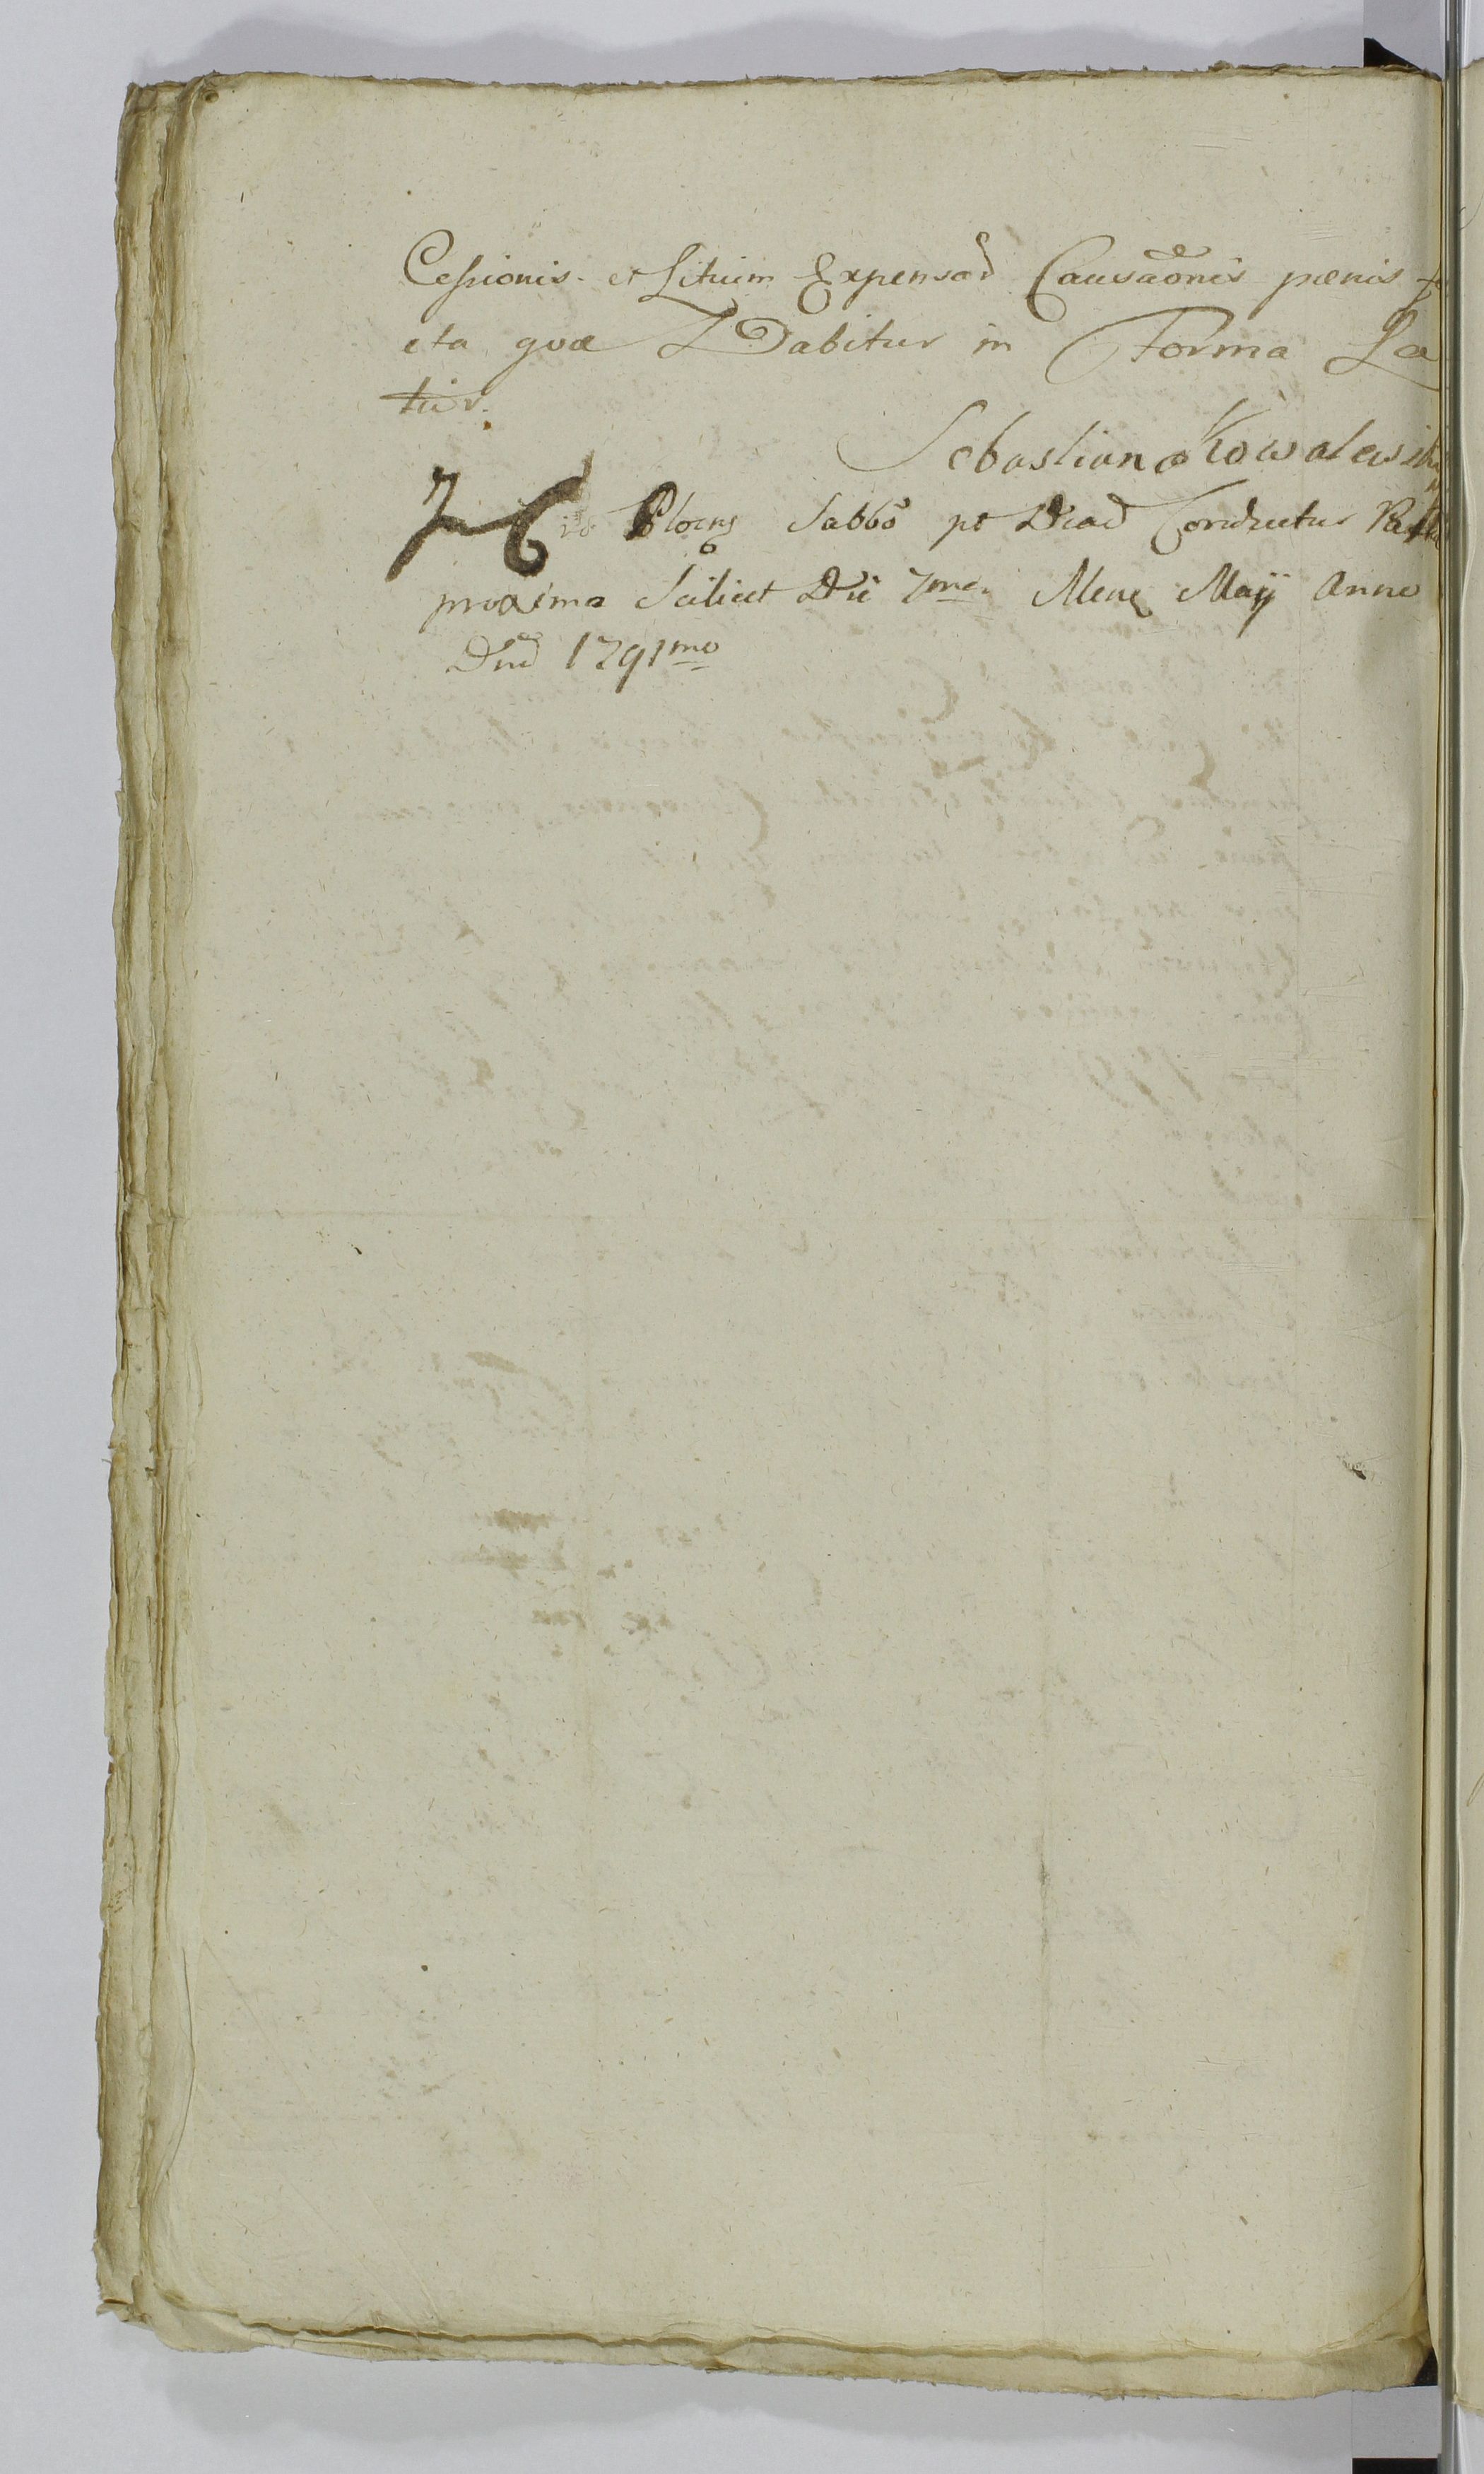 Cessionis et Litium Expensar Causaonis pænis
eta qvæ Dabitur in Forma La
tiur.
Sebastian Kowalewski
Plocens Sabbo pt Diad Conductus Pa
proxima Scilicet Die 7ma Mens Maij Anno
Dni 1791mo